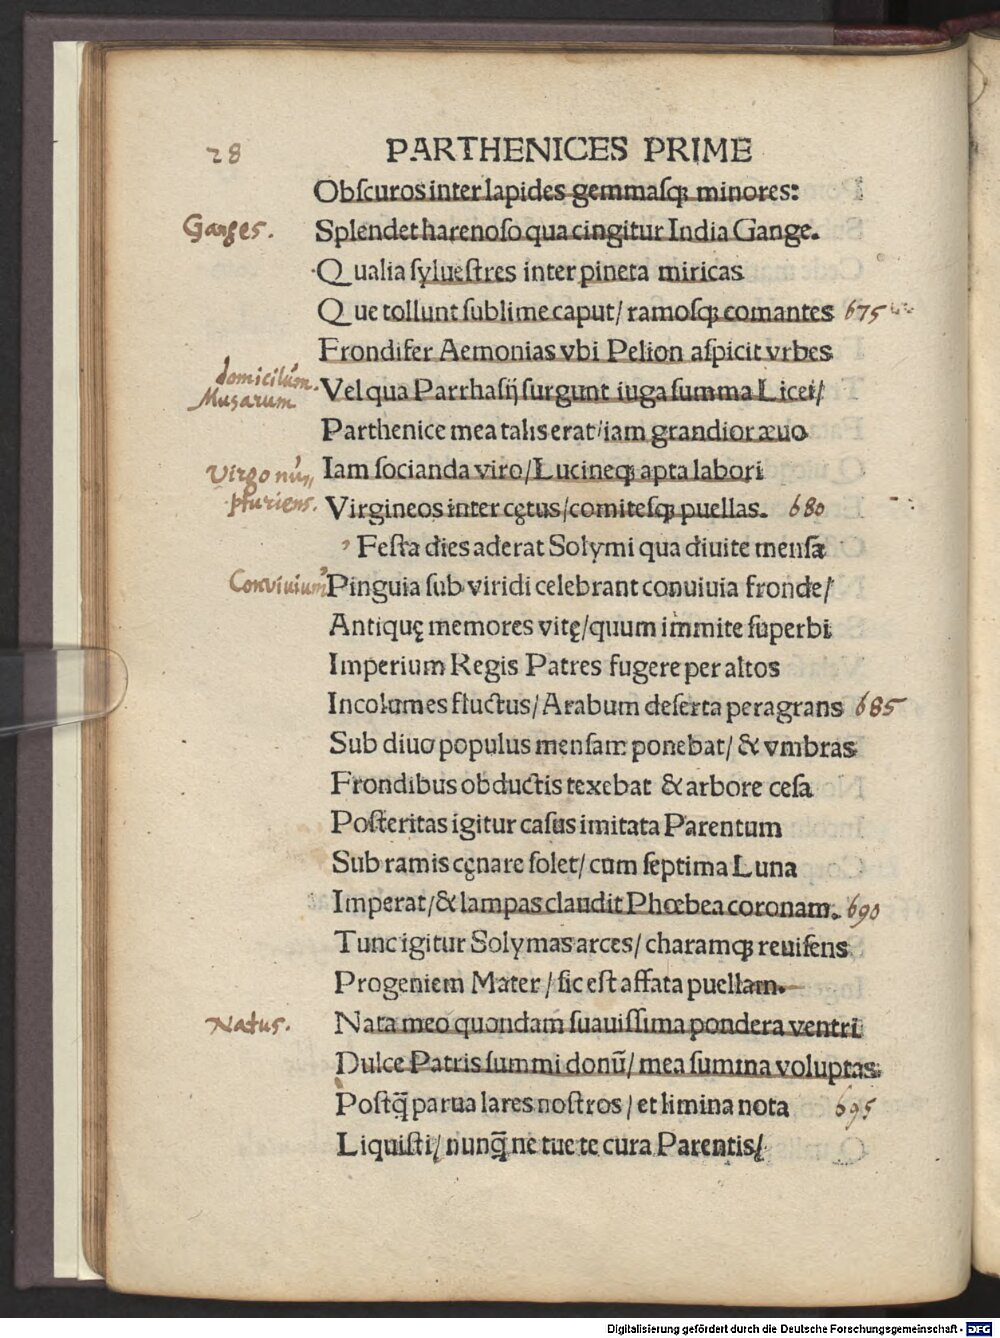 28
PARTHENICES PRIME
Obſcuros inter lapides gemmaſqꝫ minores:
Ganges.
Splendet harenoſo qua cingitur India Gange.
Qualia ſylueſtres inter pineta miricas
Que tollunt ſublime caput/ ramoſqꝫ comantes 675
Frondifer Aemonias vbi Pelion aſpicit vrbes
domicilium
Musarum
Vel qua Parrhaſij ſurgunt iuga ſumma Licei/
Parthenice mea talis erat/iam grandior æuo
Virgo nu,,
pturiens.
Iam ſocianda viro/Lucineqꝫ apta labori
Virgineos inter cętus/comiteſqꝫ puellas. 680
Feſta dies aderat Solymi qua diuite menſa
Convivium
Pinguia ſub viridi celebrant conuiuia fronde/
Antiquę memores vitę/quum immite ſuperbi
Imperium Regis Patres fugere per altos
Incolumes fluctus/Arabum deſerta peragrans 685
Sub diuo populus menſam ponebat/ & vmbras
Frondibus obductis texebat & arbore ceſa
Poſteritas igitur caſus imitata Parentum
Sub ramis cęnare ſolet/ cum ſeptima Luna
Imperat/& lampas claudit Phœbea coronam. 690
Tunc igitur Solymas arces/ charamqꝫ reuiſens
Progeniem Mater/ ſic eſt affata puellam.
Natus.
Nata meo quondam ſuauiſſima pondera ventri
Dulce Patris ſummi donū/ mea ſumma voluptas
Poſtq̄ parua lares noſtros/ et limina nota 695
Liquiſti/ nunq̄ ne tue te cura Parentis/
Digitalisierung gefördert durch die Deutsche Forschungsgemeinschaft - DFG